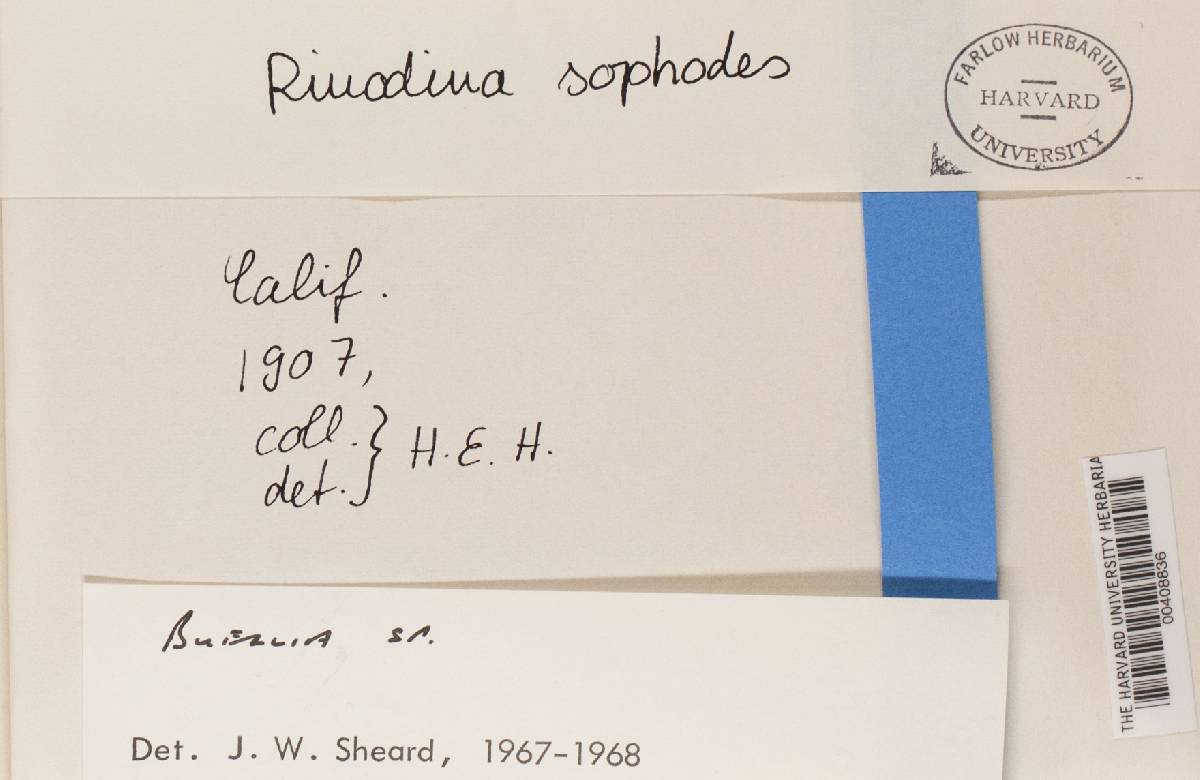 Rinodina sophodes
FARLOW HERBARIUM
HARVARD
UNIVERSITY
Calif.
1907,
coll. } H. E. H.
det.
THE HARVARD UNIVERSITY HERBARIA
00408836
BUELLIA SP.
Det. J. W. Sheard, 1967-1968